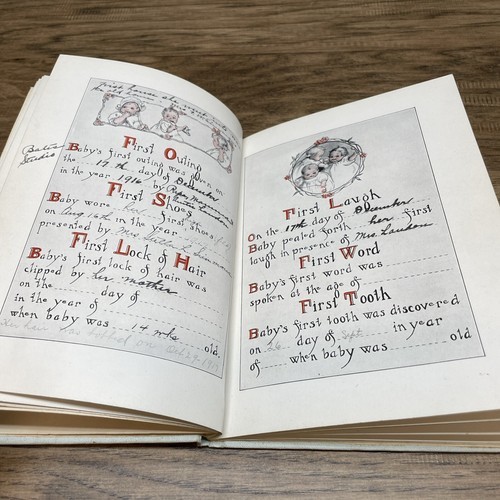 First house she went
the old house
First Outing
Baby's first outing was given on
the 17th day of December
in the year 1916 by
First Shoes
Baby wore her first shoes
on Aug 16th in the year
presented by Mrs.
First Lock of Hair
Baby's first lock of hair was
clipped by her mother
on the day of
in the year of
when baby was 14 mhs old.
First Laugh
On the 17th day of December
Baby pealed forth her first
laugh in presence of Mrs.
First Word
Baby's first word was
spoken at the age of
First Tooth
Baby's first tooth was discovered
on 26 day of Sept in year
of when baby was old